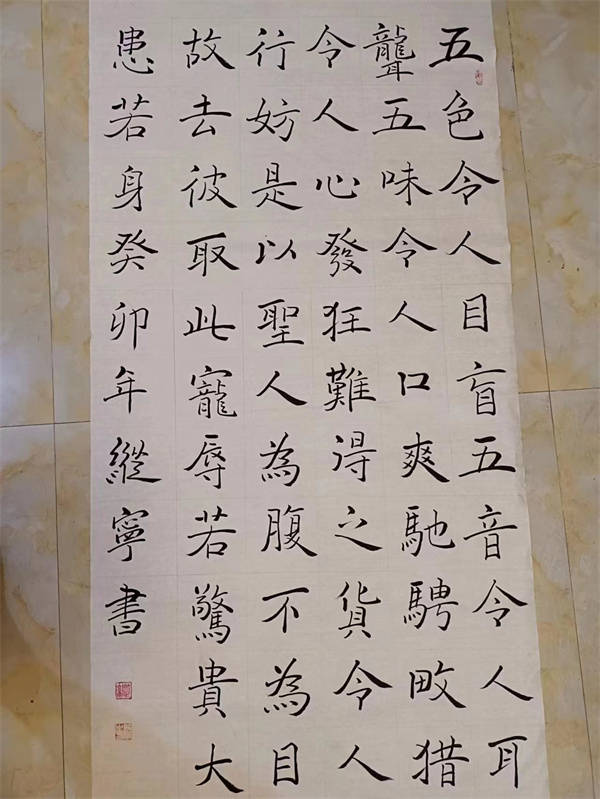 五色令人目盲五音令人耳
聾五味令人口爽馳騁畋猎
令人心發狂難得之貨令人
行妨是以聖人為腹不為目
故去彼取此寵辱若驚貴大
患若身癸卯年縱寧書